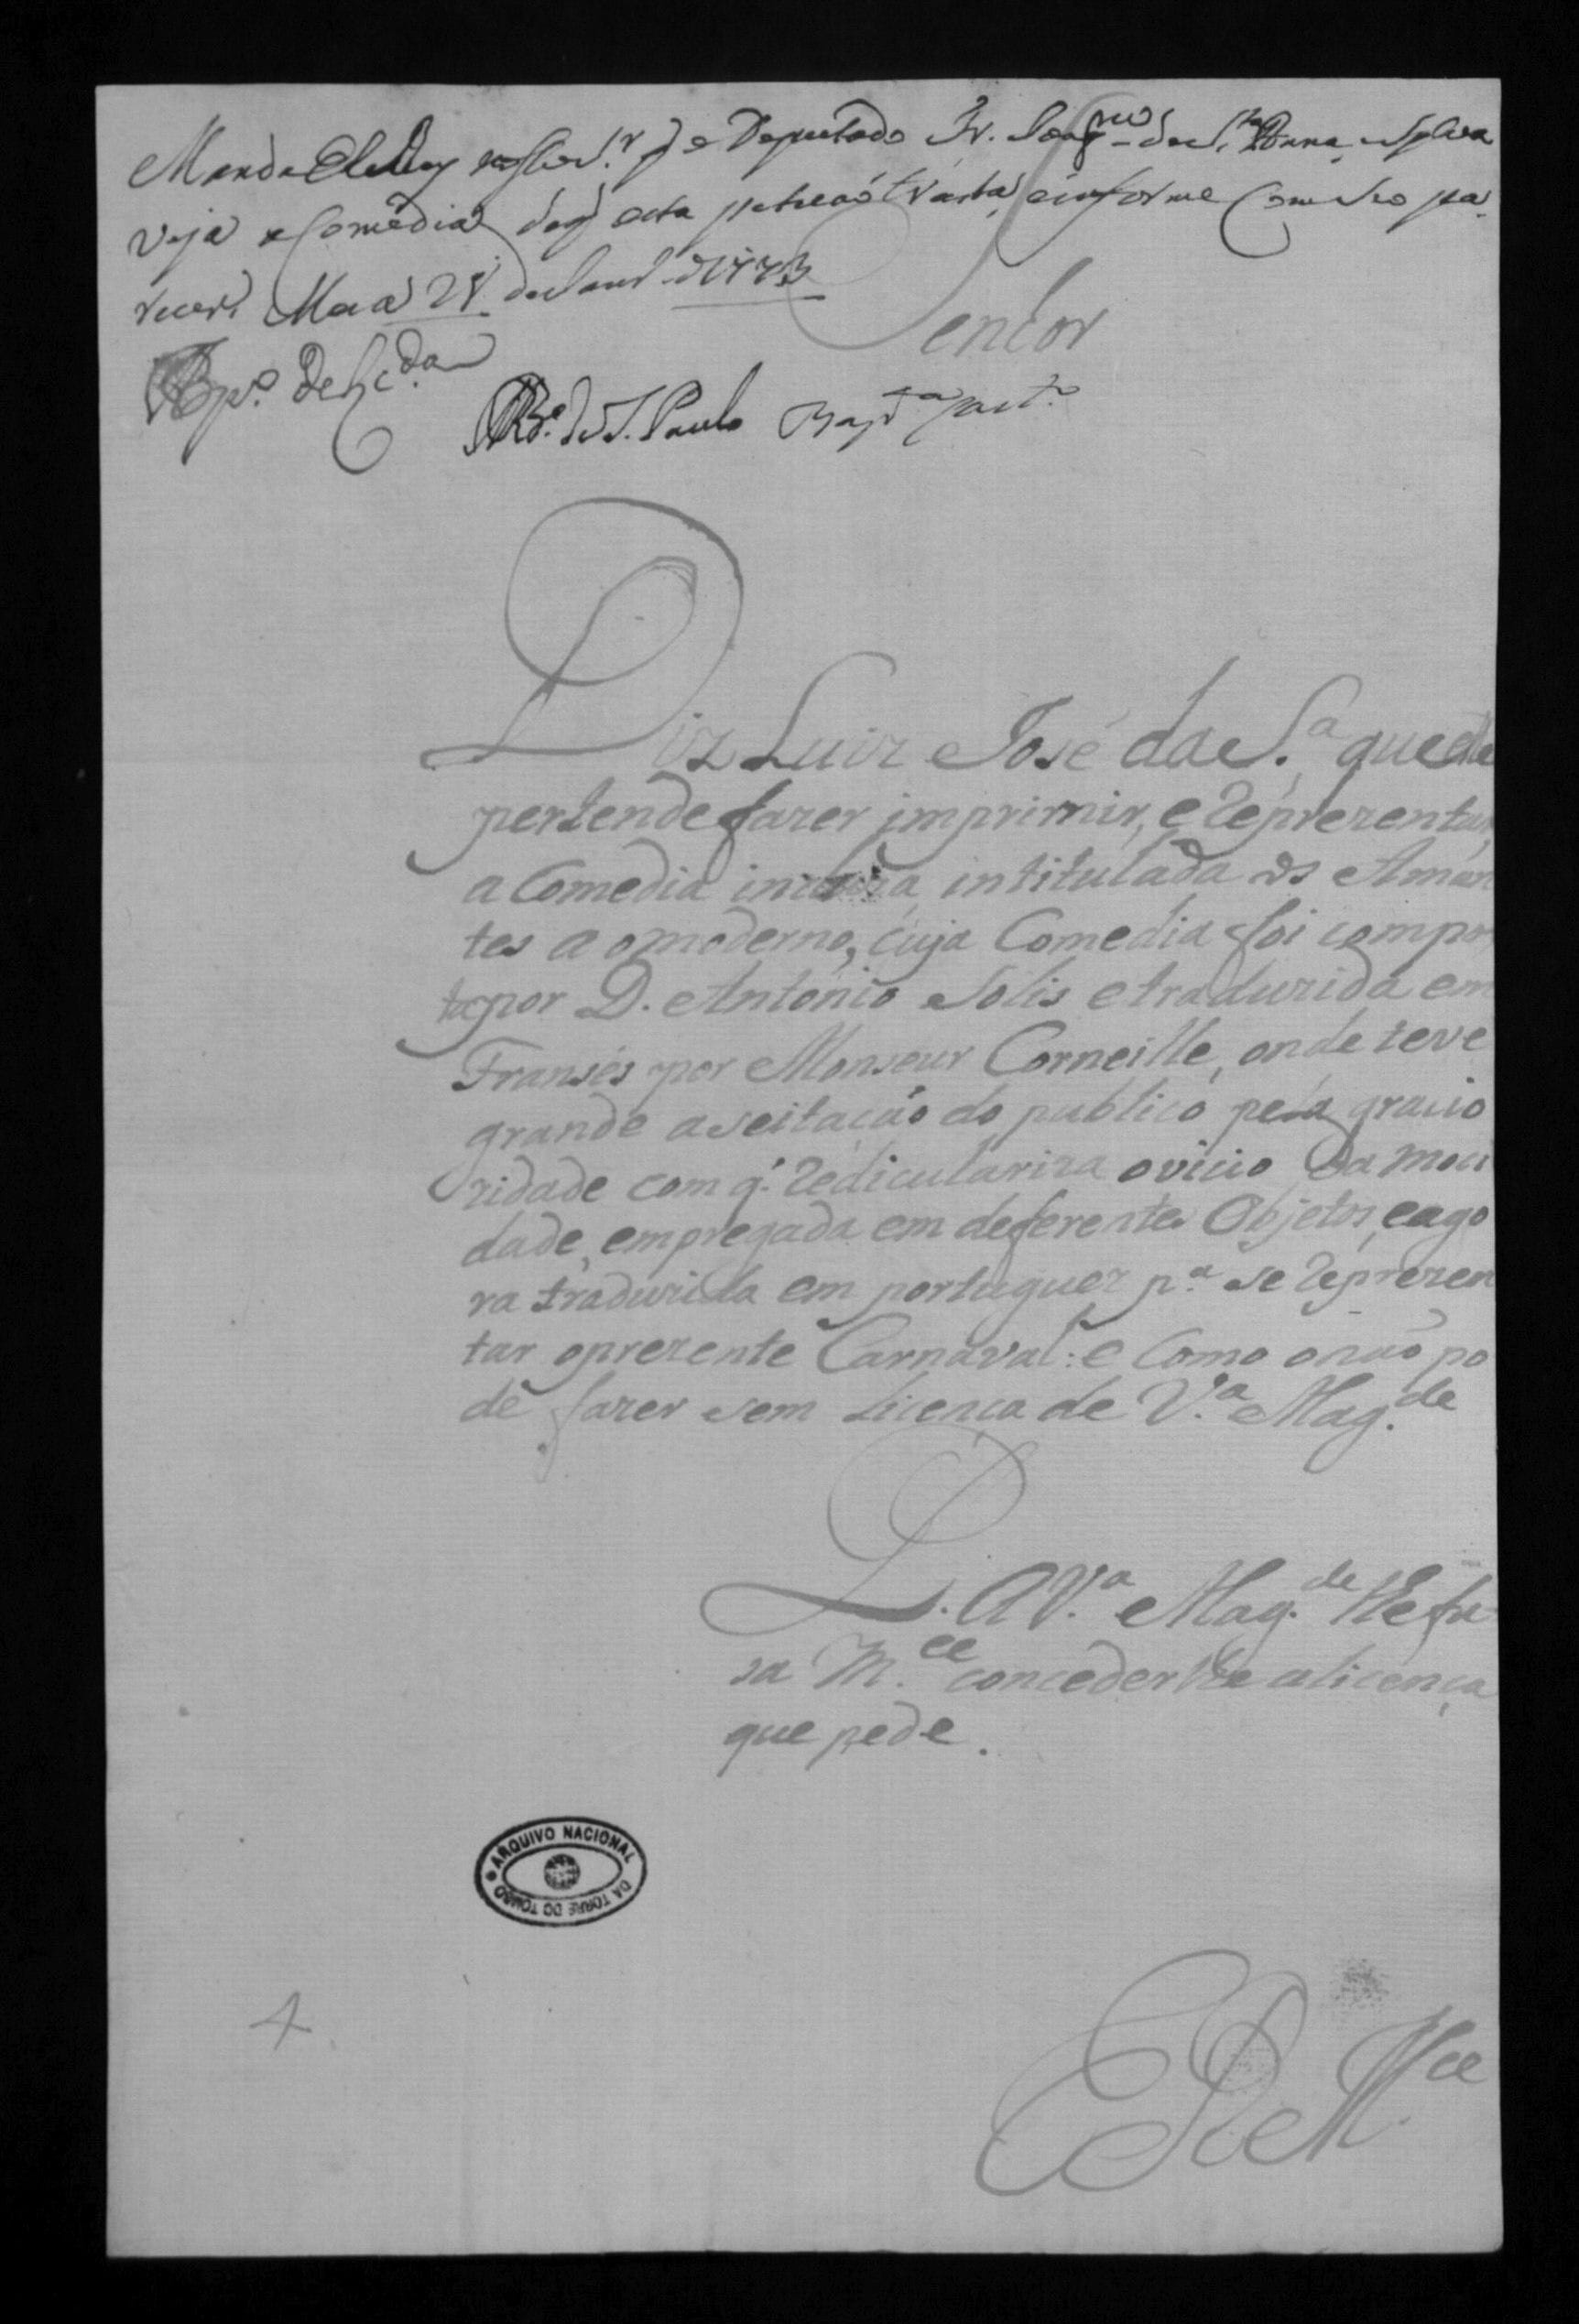 Manda ElRey nosso S.r q o Deputado Fr. Joaq.m de S.ta Anna e Sylva
veja a Comedia de q esta petiçaõ trata, e informe com seo pa-
recer. Meza 28 de Janr.o de 1773
Senhor
Bp.o de P. S. Paulo Bap.ta
Diz Luiz José da S.a que elle
pertende fazer imprimir, e Reprezentar,
a Comedia intitulada os Aman
tes ao moderno, cuja Comedia foi compos
ta por D. Antonio Solis e traduzida em
Fransés por Monseur Corneille, onde teve
grande aseitacáo do publico pela gracio
zidade com q.' Rediculariza o vicio da moci
dade, empregada em deferentes Objetos, e ago
ra traduzida em portuguez p.a se Reprezen
tar o prezente Carnaval: e Como o naõ po
de fazer sem Licença de V.a Mag.de
P. A V.a Mag.de lhe fa-
sa M.ce concederlhe a licença
que pede.
ARQUIVO NACIONAL DA TORRE DO TOMBO
4
E R M.ce